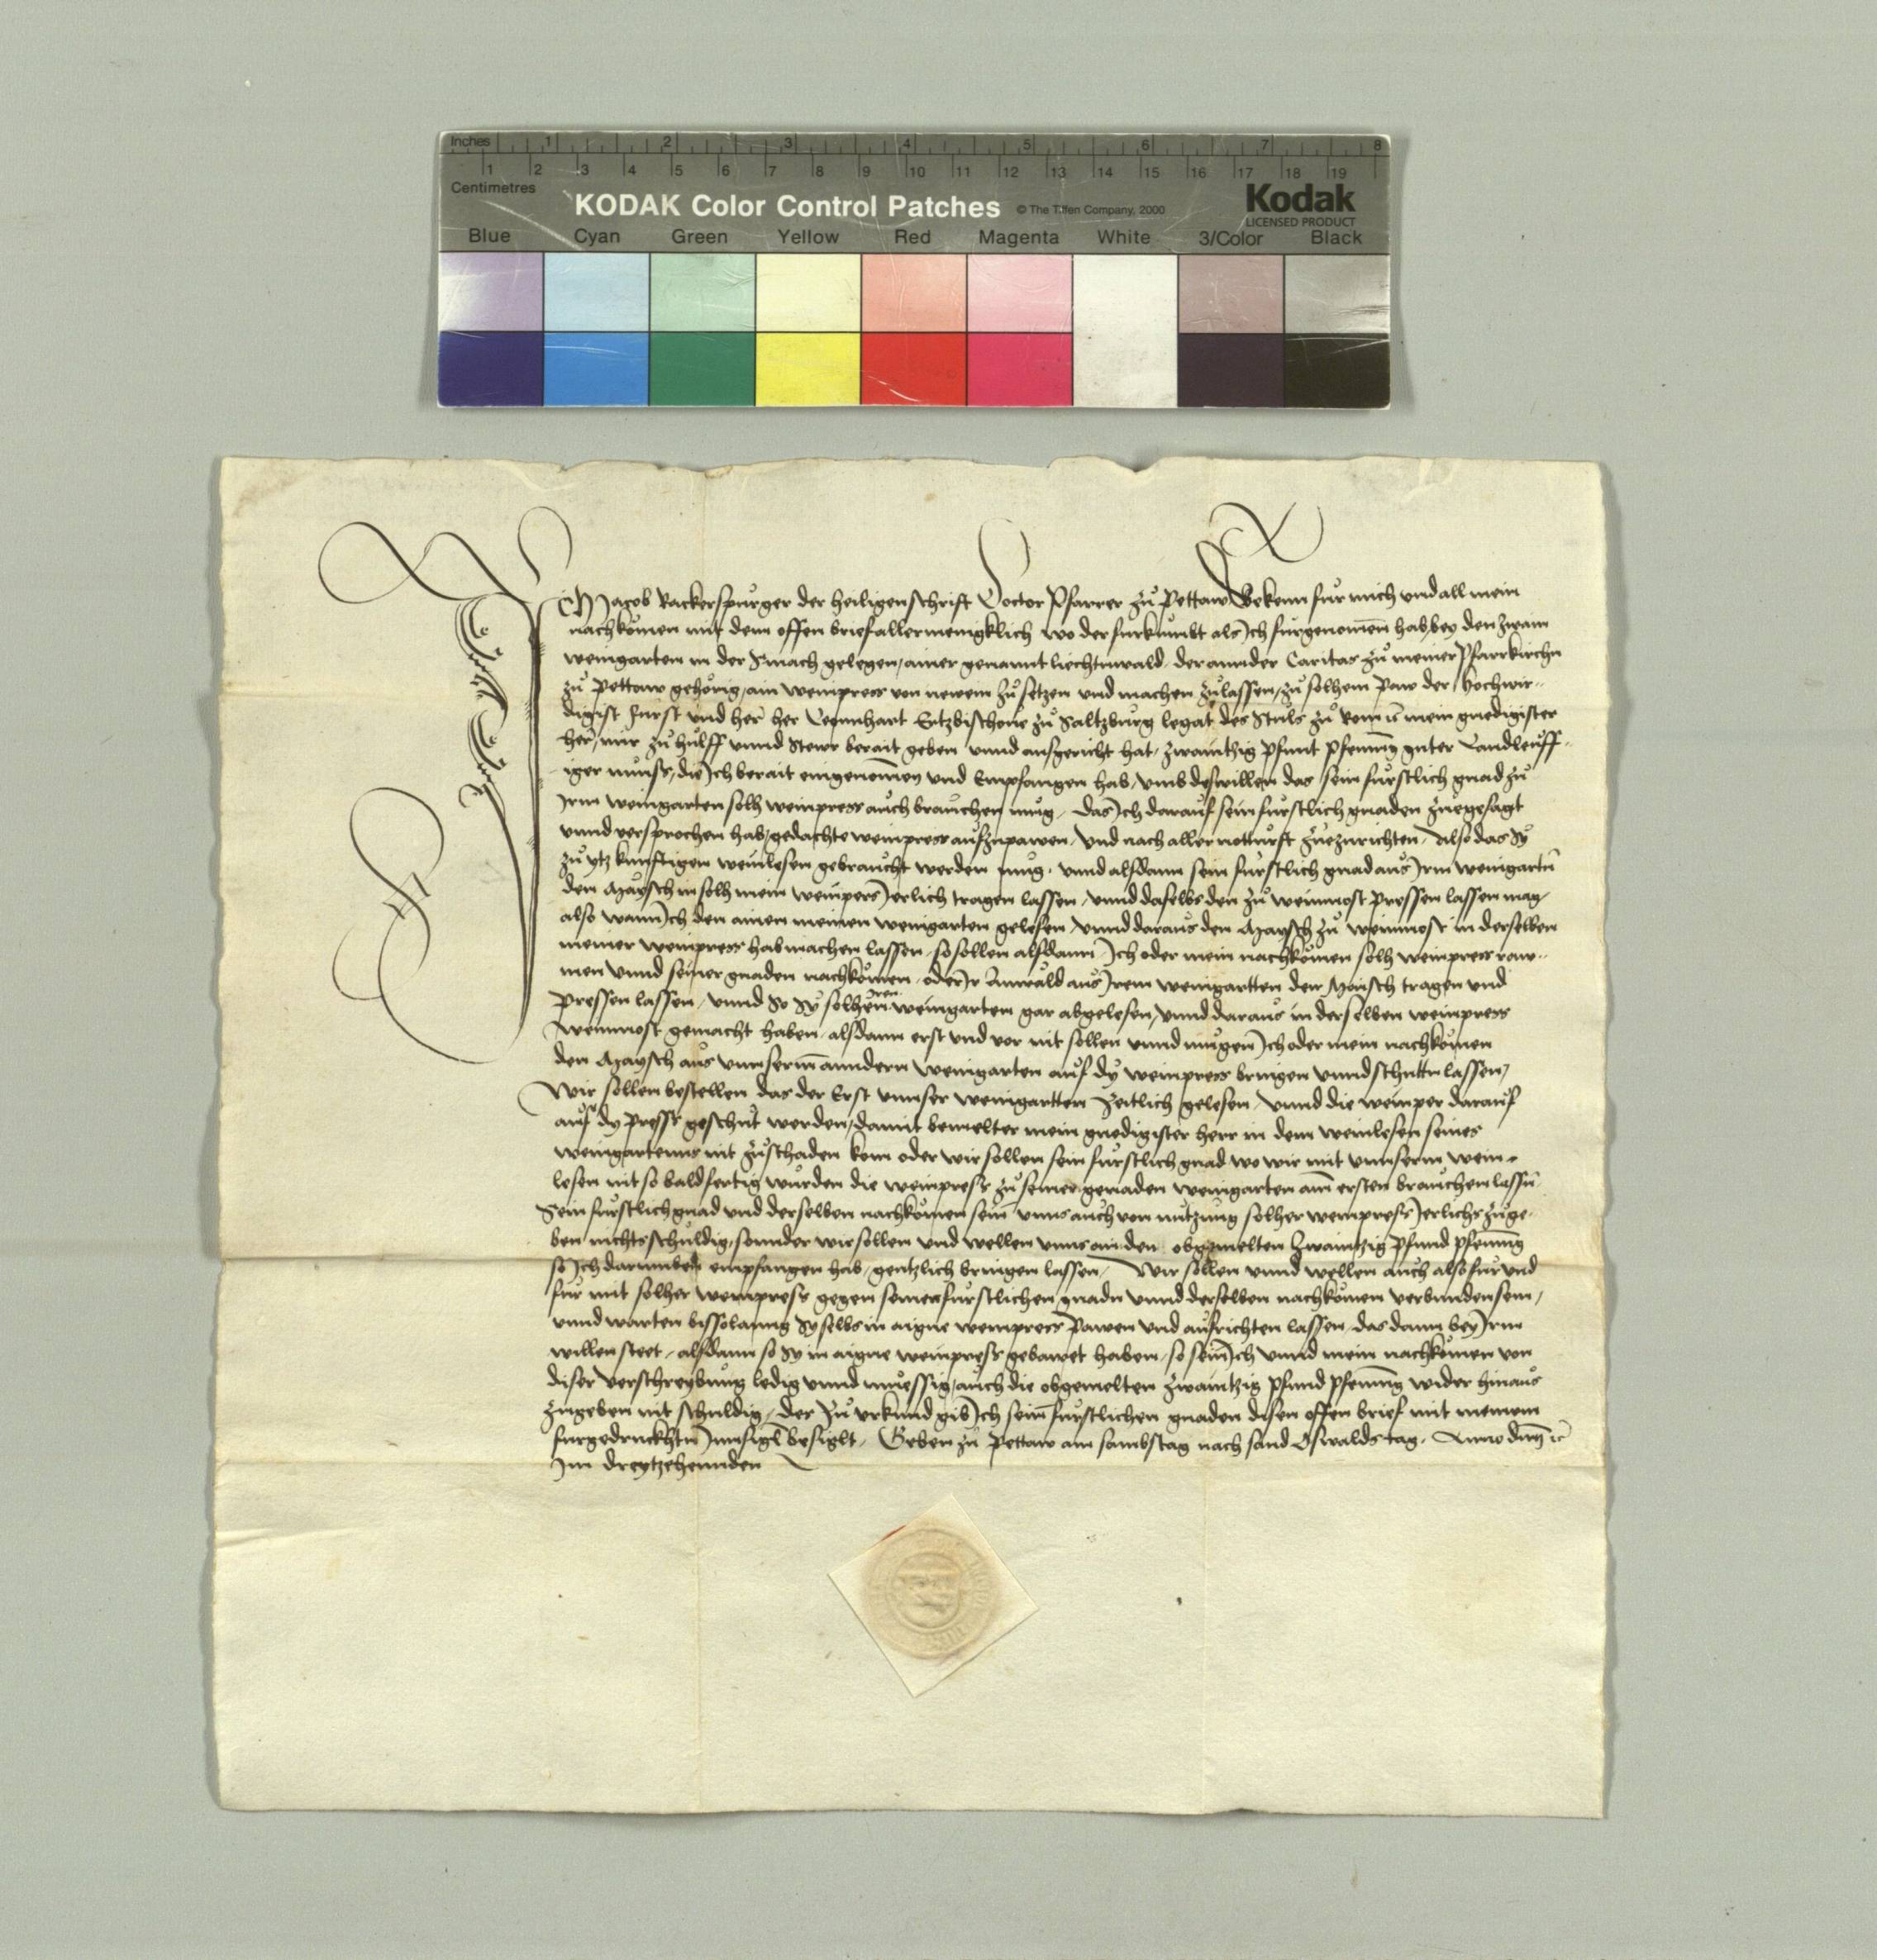 Inches 1 2 3 4 5 6 7 8
1 2 3 4 5 6 7 8 9 10 11 12 13 14 15 16 17 18 19
Centimetres
KODAK Color Control Patches © The Tiffen Company, 2000 Kodak
LICENSED PRODUCT
Blue Cyan Green Yellow Red Magenta White 3/Color Black
ICH Jacob Rackerspurger der heiligen schrift Doctor Pfarrer zu Pettaw Bekenn fur mich vnd all mein
nachkomen mit dem offen brief allermenigklich wo der furkumbt als Ich furgenomen hab, bey den zwain
weingarten in der gelegen, ainer genannt liechtnwald, der annder Caritas zu meiner Pfarrkirchn
zu Pettaw gehörig, ain weinpress von newem zu setzen vnd machen zulassen, zu solhem paw der Hochwir-
digist Furst vnd her her Leonnhart Ertzbischove zu Saltzburg legat des Stuls zu Rom mein gnedigister
her, mir zu hulff vnnd Stewr berait geben vnnd ausgericht hat, zwaintzig pfunt pfenning guter Landleuff-
iger munss, die Ich berait eingenomen vnd Empfangen hab, vmb deswillen das sein furstlich gnad zu
Irm weingarten solh weinpress auch brauchen mug, das Ich darauf sein furstlich gnaden zuegesagt
vnnd versprochen hab, gedachte weinpress aufzupawen, vnd nach aller notturft zuezurichten, Also das Sy
zu ytz kunftigen weinlesen gebraucht werden mug, vnnd alsdann sein furstlich gnad aus Irm weingartn
den Maysch in solh mein weinpers Ierlich tragen lassen, vnnd daselbs den zu weinmost pressen lassen mag,
also wann Ich den ainen meinen weingarten gelesen vnnd daraus den Maysch zu weinmost in derselben
meiner weinpress hab machen lassen, so sollen alsdann Ich oder mein nachkomen solh weinpress raw-
men vnnd seiner gnaden nachkomen, oder Ir Anwald aus Irem weingartten den Maisch tragen vnd
pressen lassen, vnnd So Sy solhen Iren weingarten gar abgelesen, vnnd daraus in derselben weinpress
weinmost gemacht haben, alsdann erst vnd vor nit sollen vnnd mugen Ich oder mein nachkomen
den Maysch aus vnnserm anndern weingarten auf dy weinpress bringen vnnd schuttn lassen,
Wir sollen bestellen das der Erst vnnser weingartten zeitlich gelesen, vnnd die weinper darauf
auf dy press geschut werden, damit bemelter mein gnedigister herr in dem weinlesen seines
weingartenns nit zu schaden kom oder wir sollen sein furstlich gnad wo wir mit vnnserm wein-
lesen nit so bald fertig wurden die weinpress zu seiner genaden weingarten am ersten brauchen lassn
Sein furstlich gnad vnd derselben nachkomen sein vnns auch von nutzung solher weinpress Ierlichs zuge-
ben nichts schuldig, sonnder wir sollen vnd wellen vnns an den obgemelten zwaintzig pfund pfenning
so Ich darumben empfangen hab, gentzlich bringen lassen, Wir sollen vnnd wellen auch also fur vnd
fur mit solher weinpress gegen seiner furstlichen gnadn vnnd derselben nachkomen verbunden sein,
vnnd warten bissolanng Sy selbs in aigne weinpress pawen vnd aufrichten lassen, das dann bey Irm
willen steet, alsdann so Sy in aigne weinpress gebawet haben, so sein Ich vnnd mein nachkomen von
diser verschreybung ledig vnnd muessig, auch die obgemelten zwaintzig pfund pfenning wider hinaus
zugeben nit schuldig, der zu vrkund gib Ich sein furstlichen gnaden disen offen brief mit meinem
furgedruckhtn Innsigl besiglt, Geben zu Pettaw am sambstag nach sand Oswalds tag, Anno dnj
Im dreytzehennden